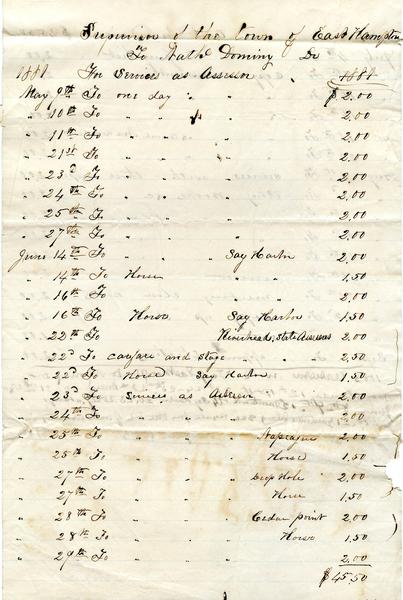 Supervisor of the town of East Hampton
To Nathl Dominy Dr
1881 For Services as Assessor 1881
May 9th To one day " $2.00
" 10th To " " " 2.00
" 11th To " " " 2.00
" 21st To " " " 2.00
" 23d To " " " 2.00
" 24th To " " " 2.00
" 25th To " " " 2.00
" 27th To " " " 2.00
June 14th To " " Sag Harbor 2.00
" 14th To Horse " " 1.50
" 16th To " " " " 2.00
" 16th To Horse Sag Harbor 1.50
" 22th To " " State Assessors 2.00
" 22d To carfare and stage " " 2.50
" 22d To Horse Sag Harbor 1.50
" 23d To Services as Assessor 2.00
" 24th To " " " 2.00
" 25th To " " " Napeague 2.00
" 25th To " " " Horse 1.50
" 27th To " " " Hole 2.00
" 27th To " " " Horse 1.50
" 28th To " " " Cedar point 2.00
" 28th To " " " Horse 1.50
" 29th To " " " 2.00
$45.50